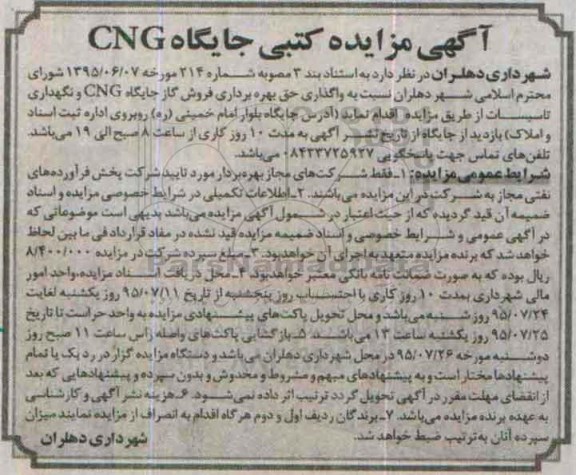 آگهی مزایده کتبی جایگاه CNG
شهرداری دهلران در نظر دارد به استناد بند ۳ مصوبه شماره ۲۱۴ مورخه ۱۳۹۵/۰۶/۰۷ شورای
محترم اسلامی شهر دهلران نسبت به واگذاری حق بهره برداری فروش گاز جایگاه CNG و نگهداری
تاسیسات از طریق مزایده اقدام نماید (آدرس جایگاه بلوار امام خمینی (ره) روبروی اداره ثبت اسناد
و املاک) بازدید از جایگاه از تاریخ نشر آگهی به مدت ۱۰ روز کاری از ساعت ۸ صبح الی ۱۹ می‌باشد.
تلفن‌های تماس جهت پاسخگویی ۰۸۴۳۳۷۲۵۹۲۷ می‌باشد.
شرایط عمومی مزایده: ۱ـ فقط شرکت‌های مجاز بهره‌بردار مورد تایید شرکت پخش فرآورده‌های
نفتی مجاز به شرکت در این مزایده می‌باشند. ۲ـ اطلاعات تکمیلی در شرایط خصوصی مزایده و اسناد
ضمیمه آن قید گردیده که از حیث اعتبار در شمول آگهی مزایده می‌باشد بدیهی است موضوعاتی که
در آگهی عمومی و شرایط خصوصی و اسناد ضمیمه مزایده قید نشده در مفاد قرارداد فی ما بین لحاظ
خواهد شد که برنده مزایده متعهد به اجرای آن خواهد بود. ۳ـ مبلغ سپرده شرکت در مزایده ۸/۴۰۰/۰۰۰
ریال بوده که به صورت ضمانت نامه بانکی معتبر خواهد بود. ۴ـ محل دریافت اسناد مزایده، واحد امور
مالی شهرداری بمدت ۱۰ روز کاری با احتساب روز پنجشنبه از تاریخ ۹۵/۰۷/۱۱ روز یکشنبه لغایت
۹۵/۰۷/۲۴ روز شنبه می‌باشد و محل تحویل پاکت‌های پیشنهادی مزایده به واحد حراست تا تاریخ
۹۵/۰۷/۲۵ روز یکشنبه ساعت ۱۳ می‌باشد. ۵ـ بازگشایی پاکت‌های واصله راس ساعت ۱۱ صبح روز
دوشنبه مورخه ۹۵/۰۷/۲۶ در محل شهرداری دهلران می‌باشد و دستگاه مزایده گزار در رد یک یا تمام
پیشنهادها مختار است و به پیشنهادهای مبهم و مشروط و مخدوش و بدون سپرده و پیشنهادهایی که بعد
از انقضای مهلت مقرر در آگهی تحویل گردد ترتیب اثر داده نمی‌شود. ۶ـ هزینه نشر آگهی و کارشناسی
به عهده برنده مزایده می‌باشد. ۷ـ برندگان ردیف اول و دوم هرگاه اقدام به انصراف از مزایده نمایند میزان
سپرده آنان به ترتیب ضبط خواهد شد.
شهرداری دهلران